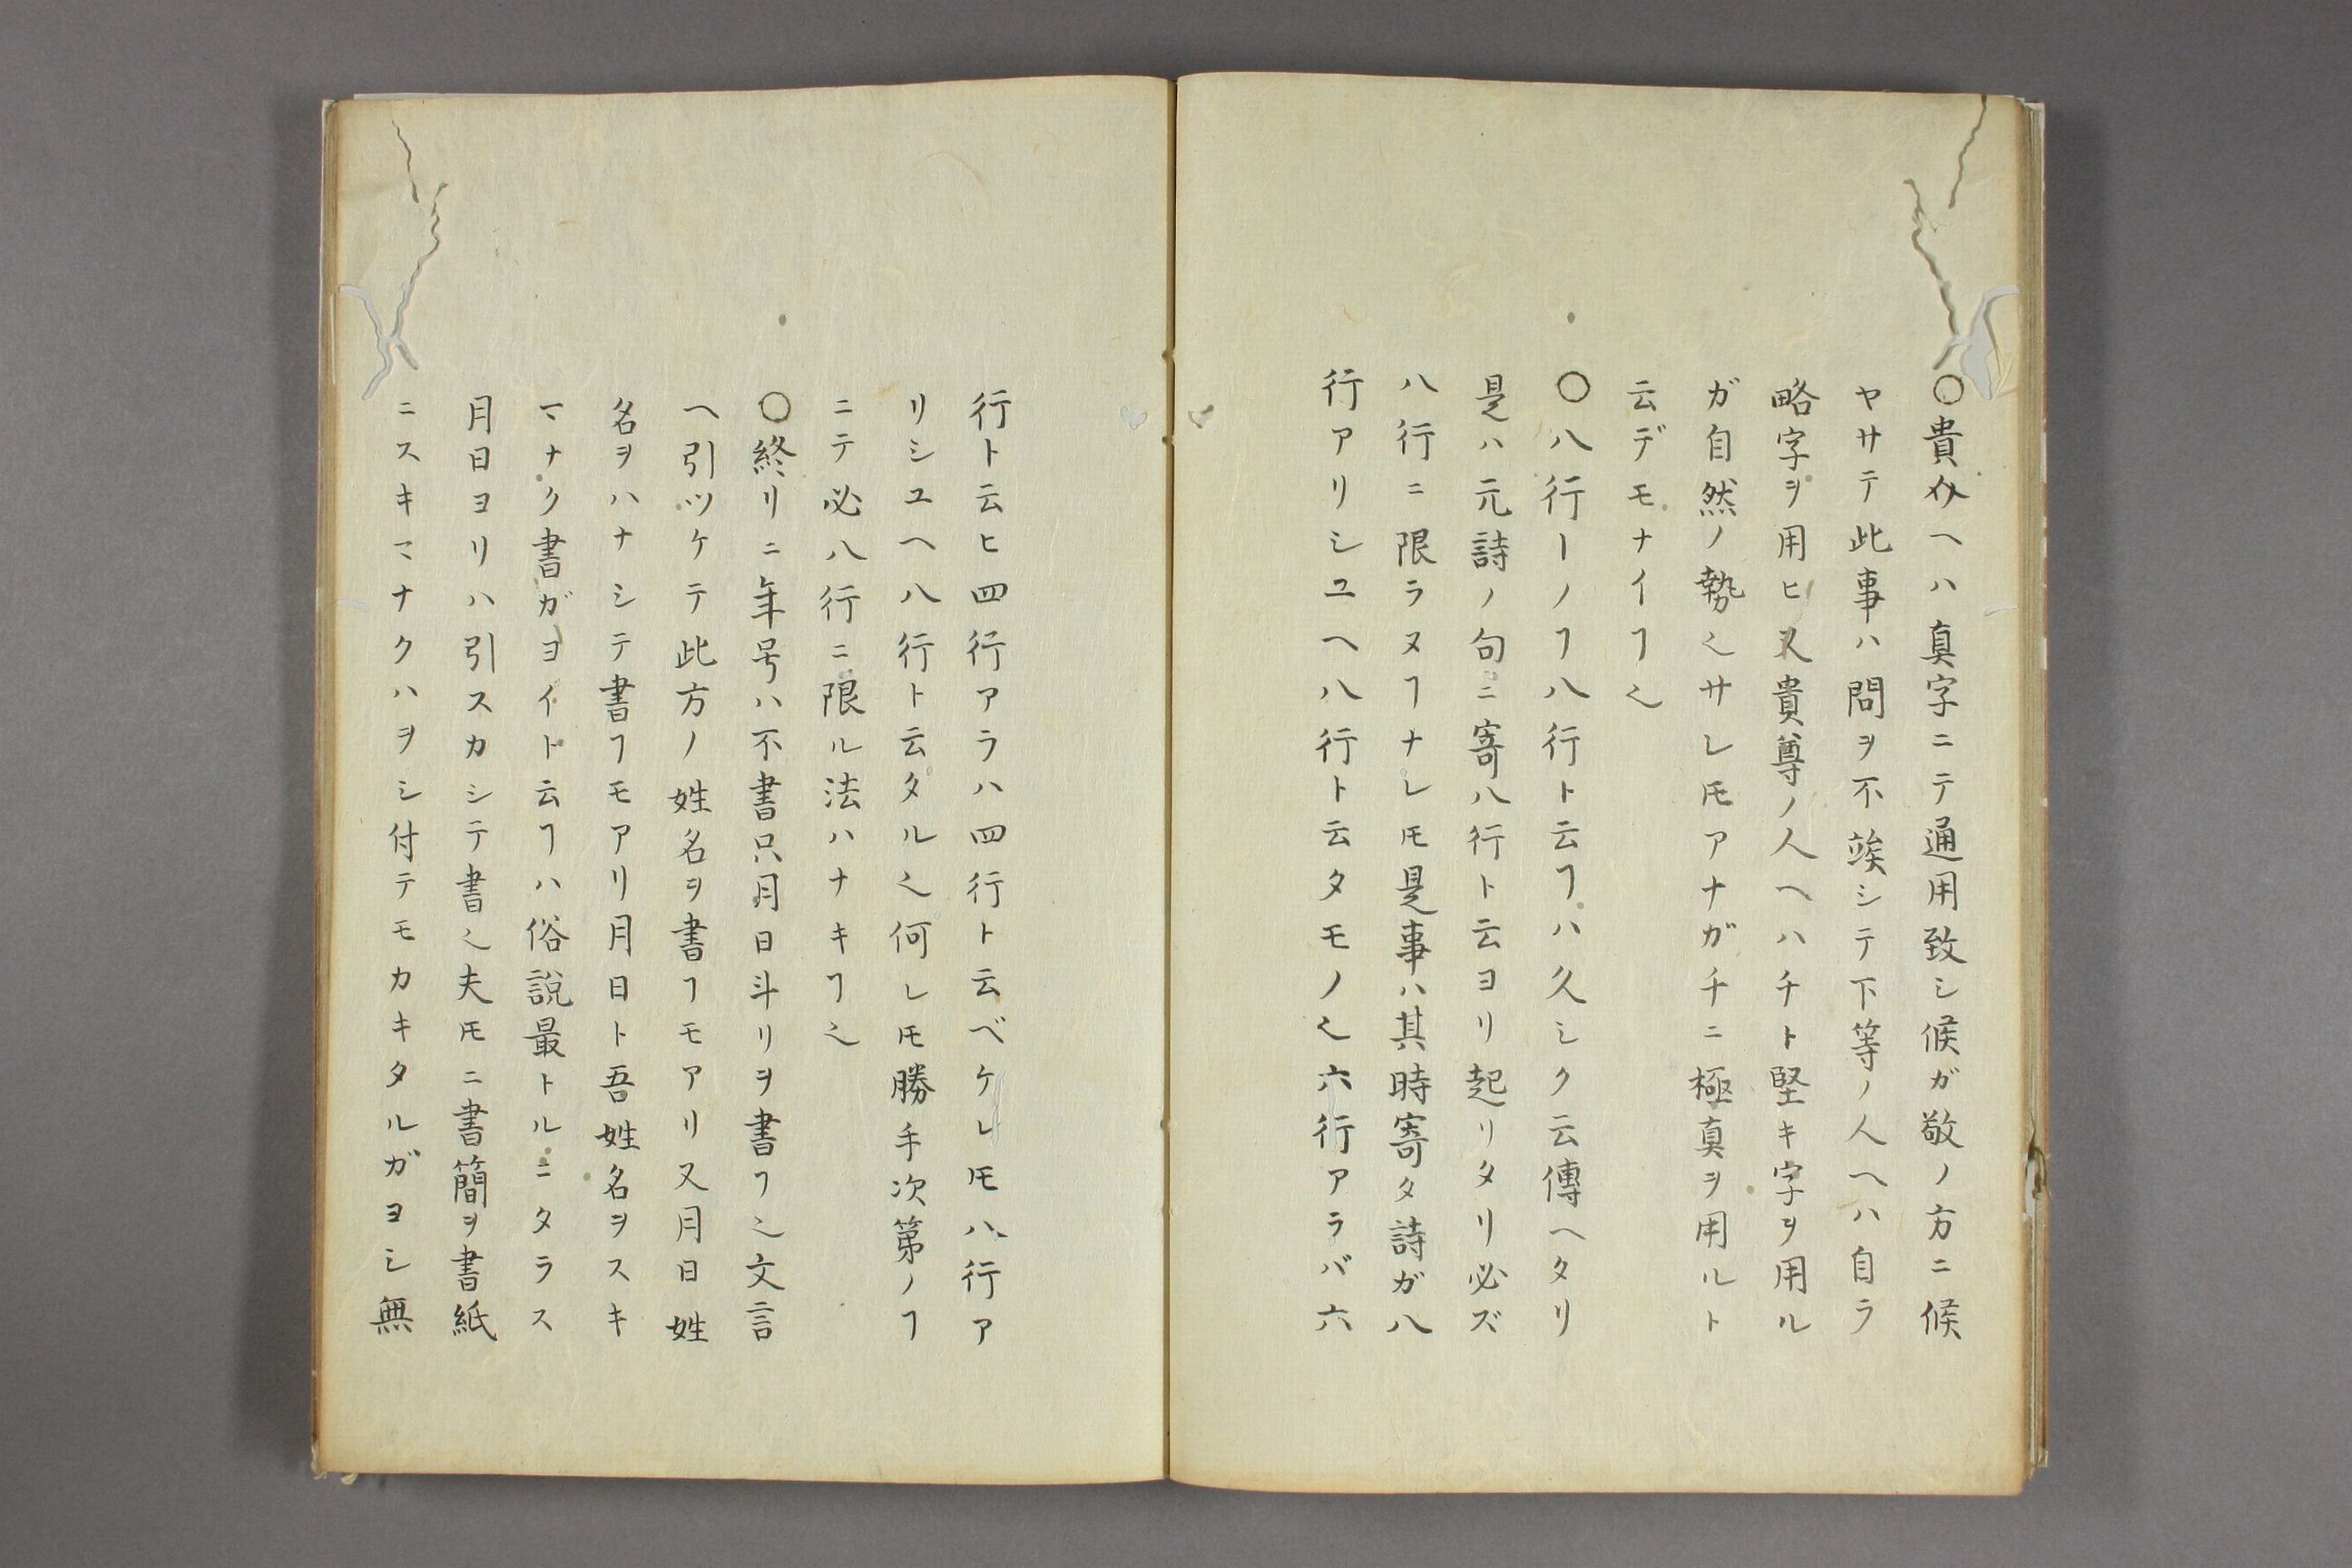 〇貴介ヘハ真字ニテ通用致シ候ガ敬ノ方ニ候
ヤサテ此事ハ問ヲ不竢シテ下等ノ人ヘハ自ラ
略字ヲ用ヒ又貴尊ノ人ヘハチト堅キ字ヲ用ル
ガ自然ノ勢𪜈サレ𪜈アナガチニ極真ヲ用ルト
云デモナイヿ也
〇八行ーノヿ八行ト云ヿハ久シク云傳ヘタリ
是ハ元詩ノ句ニ寄八行ト云ヨリ起リタリ必ズ
八行ニ限ラヌヿナレ𪜈是事ハ其時寄タ詩ガ八
行アリシユヘ八行ト云タモノ也六行アラバ六
行ト云ヒ四行アラハ四行ト云ベケレ𪜈八行ア
リシユヘ八行ト云タル也何レ𪜈勝手次第ノヿ
ニテ必八行ニ限ル法ハナキヿ也
〇終リニ年号ハ不書只月日斗リヲ書ヿ也文言
ヘ引ツケテ此方ノ姓名ヲ書ヿモアリ又月日姓
名ヲハナシテ書ヿモアリ月日ト吾姓名ヲスキ
マナク書ガヨイト云ヿハ俗説最トルニタラス
月日ヨリハ引スカシテ書也夫𪜈ニ書簡ヲ書紙
ニスキマナクハヲシ付テモカキタルガヨシ無